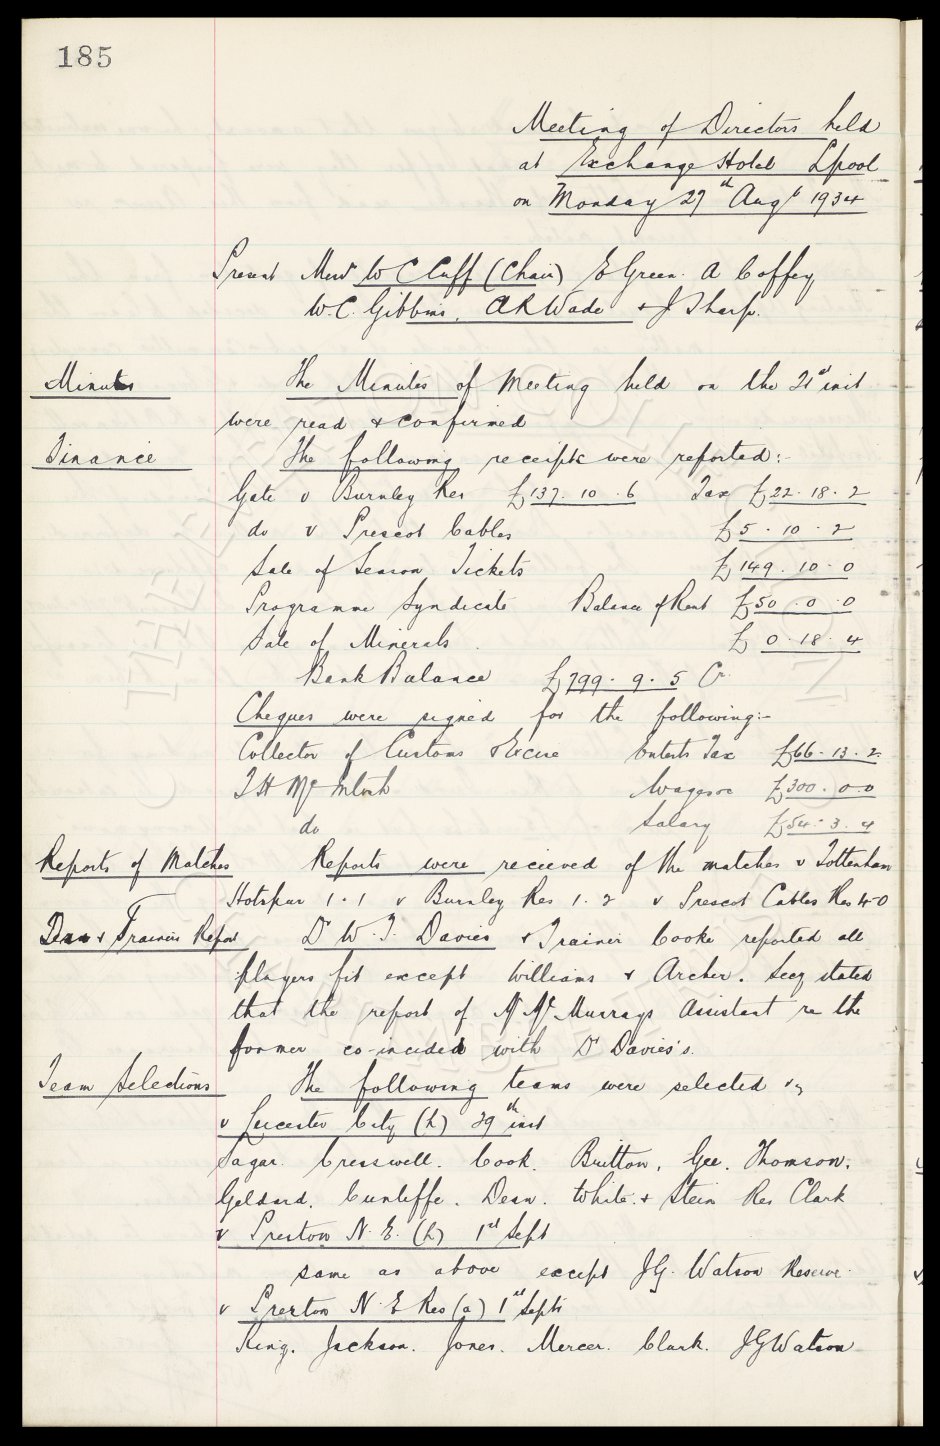 185
Meeting of Directors held
at Exchange Hotel Lpool
on Monday 27th Augt 1934
Present Messrs W C Cuff (Chair) E Green. A Coffey
W.C. Gibbins, A R Wade & J Sharp.
Minutes The Minutes of Meeting held on the 21st inst
were read & confirmed
Finance The following receipts were reported:-
Gate v Burnley Res £137. 10. 6 Tax £22. 18. 2
do v Prescot Cables £5. 10. 2
Sale of Season Tickets £149. 10. 0
Programme Syndicate Balance of Rent £50. 0. 0
Sale of Minerals £0. 18. 4
Bank Balance £799. 9. 5 Cr
Cheques were signed for the following:-
Collector of Customs & Excise Enterts Tax £66. 13. 2
T H McIntosh Wages &c £300. 0. 0
do Salary £54. 3. 4
Reports of Matches Reports were recieved of the matches v Tottenham
Hotspur 1.1 v Burnley Res 1.2 v Prescot Cables Res 4-0
& Trainers Report Dr W.T. Davies & Trainer Cooke reported all
players fit except Williams & Archer. Secy stated
that the report of Mr McMurrays Assistant re the
former co-incided with Dr Davies's.
Team Selections The following teams were selected
v Leicester City (h) 29th inst
Sagar. Cresswell. Cook. Britton. Gee. Thomson.
Geldard. Cunliffe. Dean. White. & Stein Res Clark
v Preston N. E. (h) 1st Sept
same as above except J G. Watson Reserve.
v Preston N. E Res (a) 1st Sept
King. Jackson. Jones. Mercer. Clark. J G Watson
THE EVERTON COLLECTION